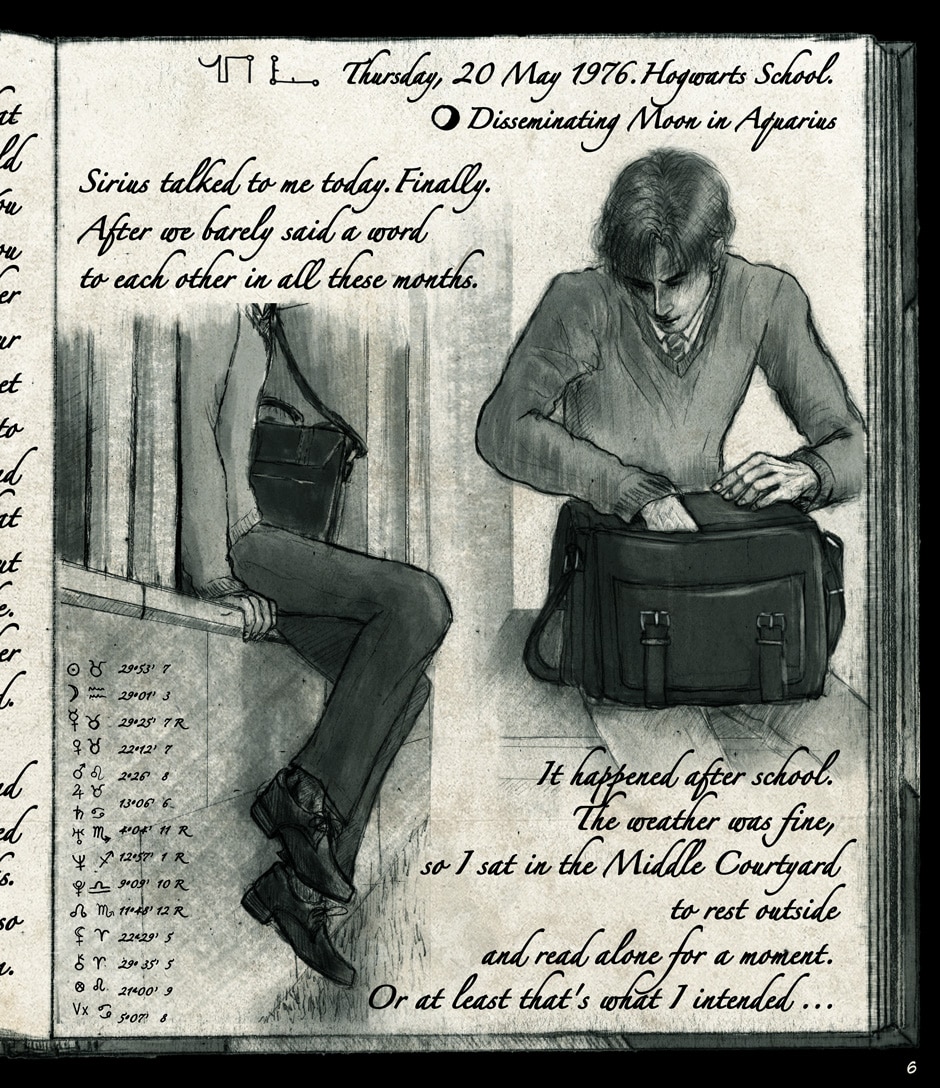 at
ld
ou
ou
er
ur
et
to
nd
at
ut
e.
er
d.
nd
ed
s.
so
n.
Thursday, 20 May 1976. Hogwarts School.
Disseminating Moon in Aquarius
Sirius talked to me today. Finally.
After we barely said a word
to each other in all these months.
☉ ♉ 29°53' 7
☽ ♒ 29°01' 3
☿ ♉ 29°25' 7 R
♀ ♉ 22°12' 7
♂ ♌ 2°26' 8
♃ ♉
♄ ♋ 13°06' 6
♅ ♏ 4°04' 11 R
♆ ♐ 12°57' 1 R
♎ 9°09' 10 R
☊ ♏ 11°48' 12 R
⚸ ♈ 22°29' 5
⚷ ♈ 29°35' 5
⊗ ♌ 21°00' 9
Vx ♋ 5°07' 8
It happened after school.
The weather was fine,
so I sat in the Middle Courtyard
to rest outside
and read alone for a moment.
Or at least that's what I intended ...
6